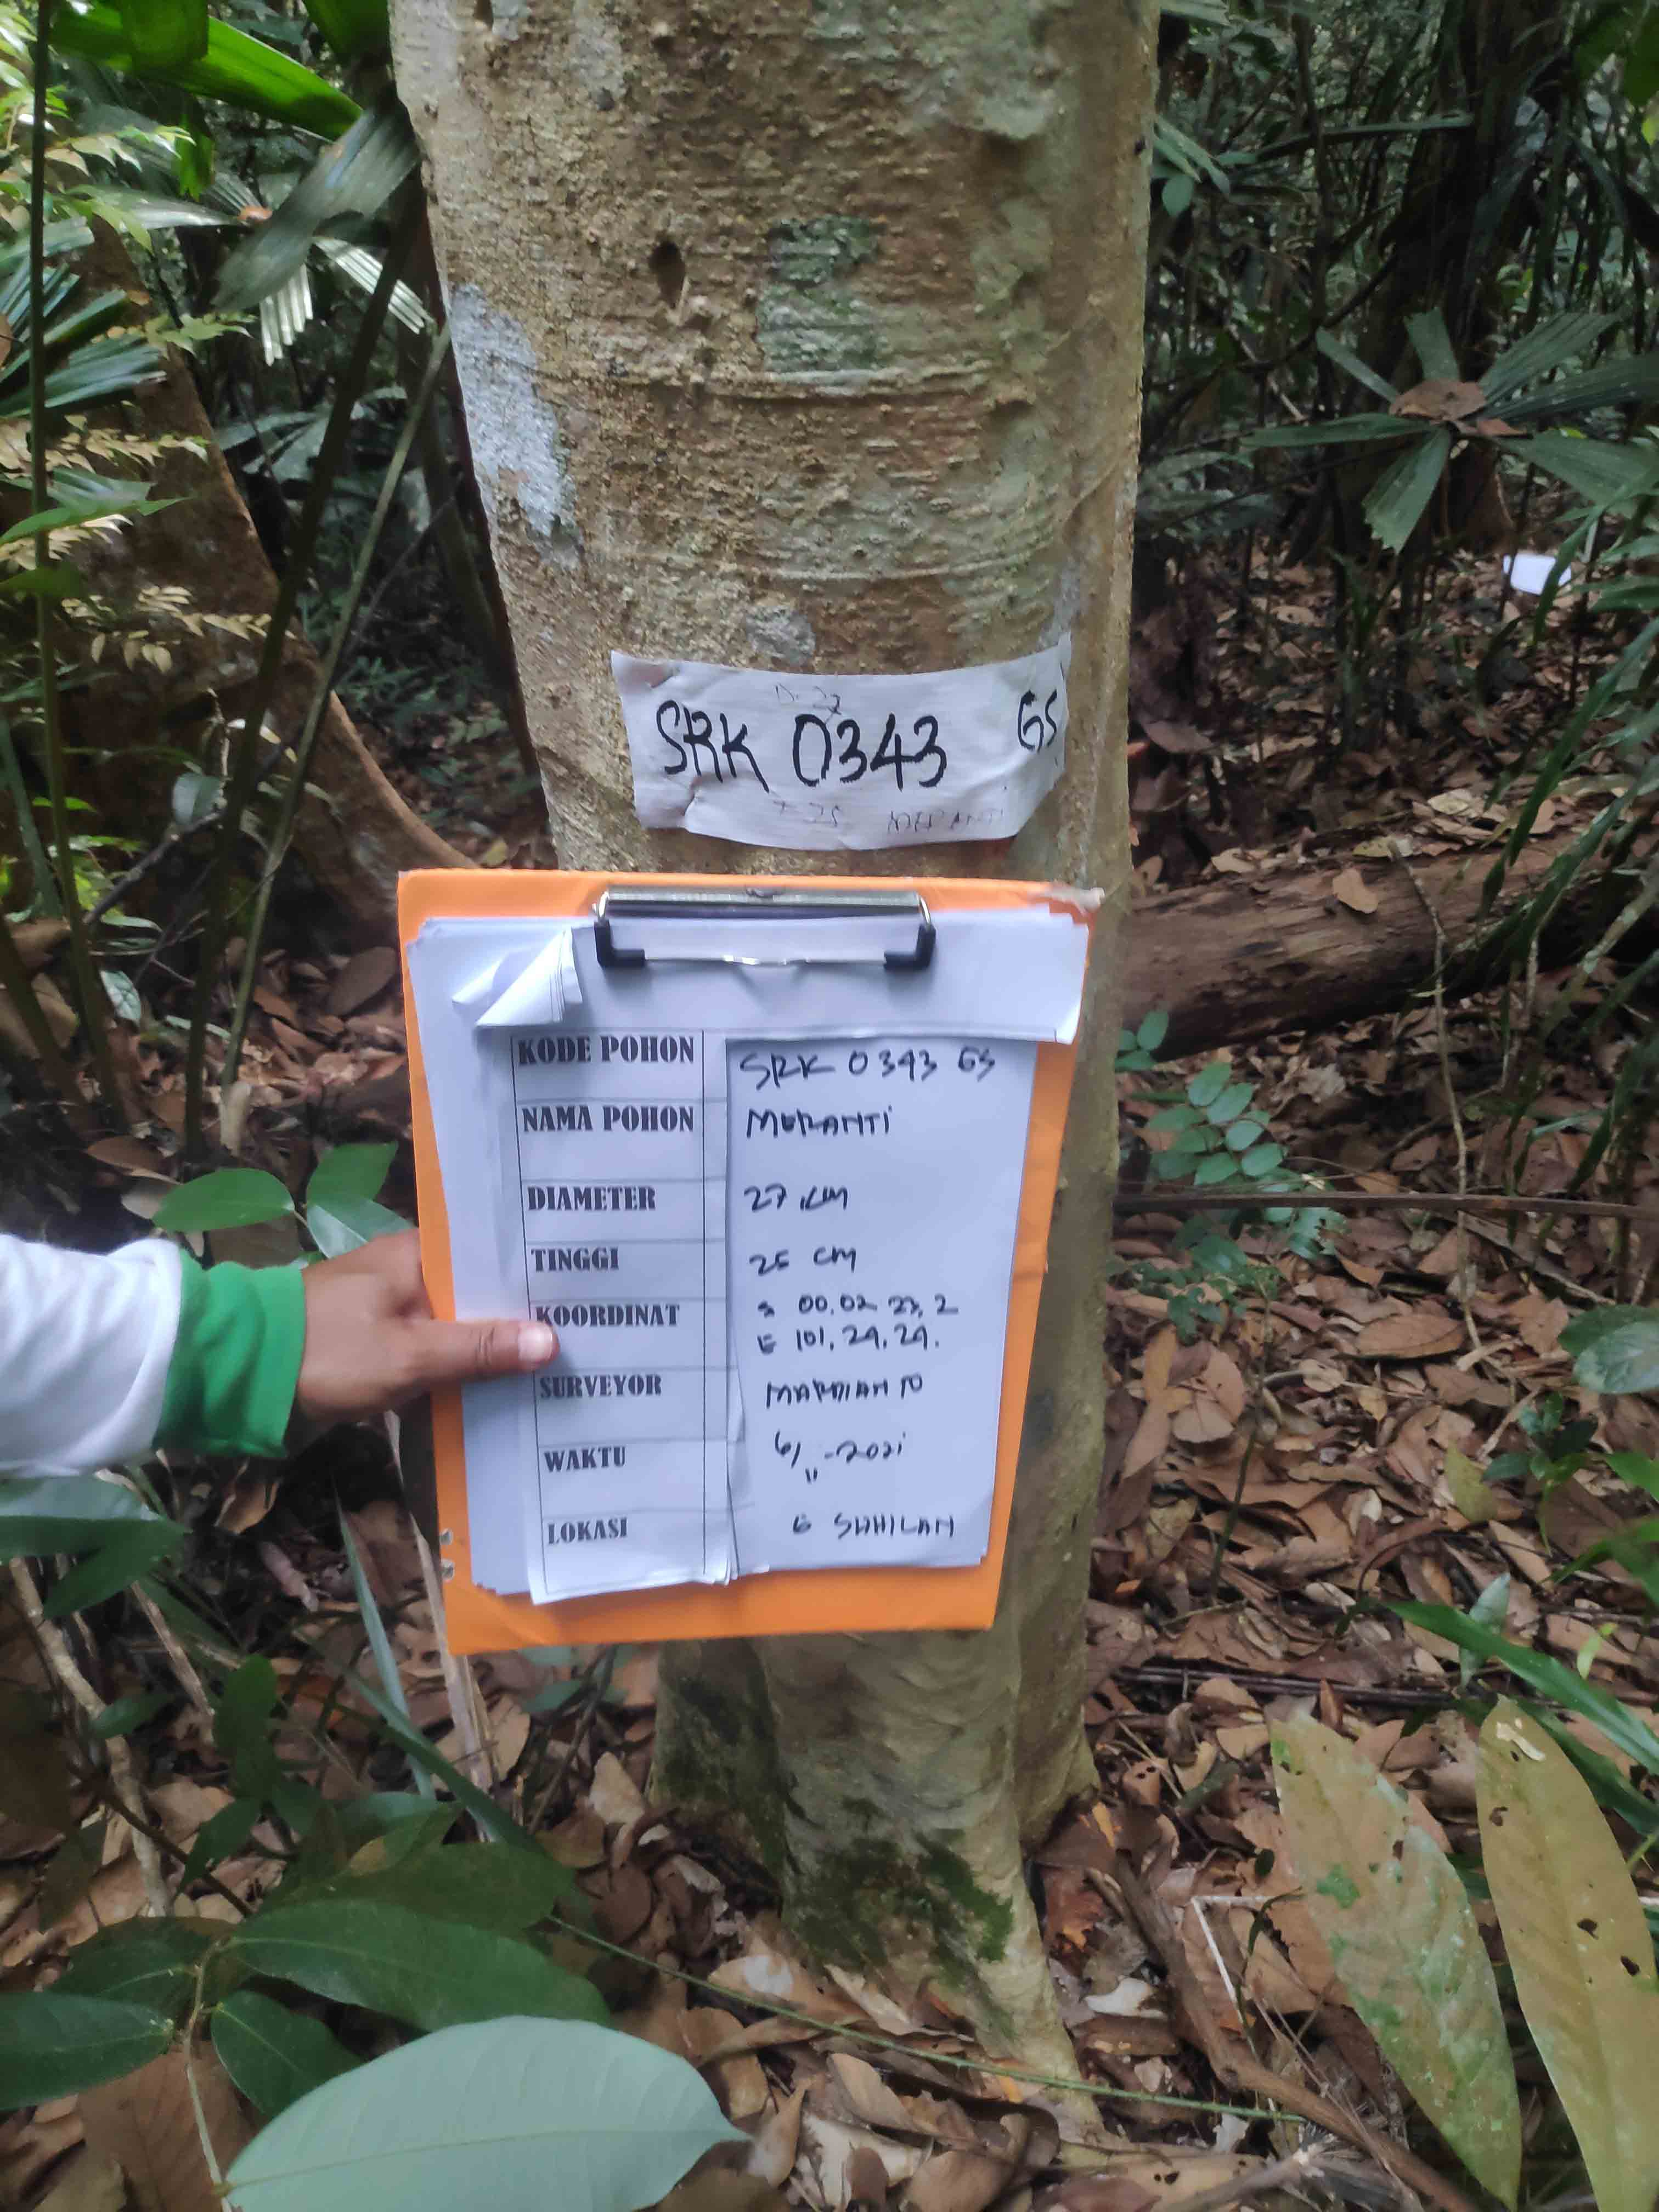 SRK 0343 GS
MERANTI
KODE POHON SRK 0343 GS
NAMA POHON MERANTI
DIAMETER 27 CM
TINGGI 25 CM
KOORDINAT S 00,02 23,2
E 101,29,29.
SURVEYOR MARDIANTO
WAKTU 6/11-2021
LOKASI G SAHILAN